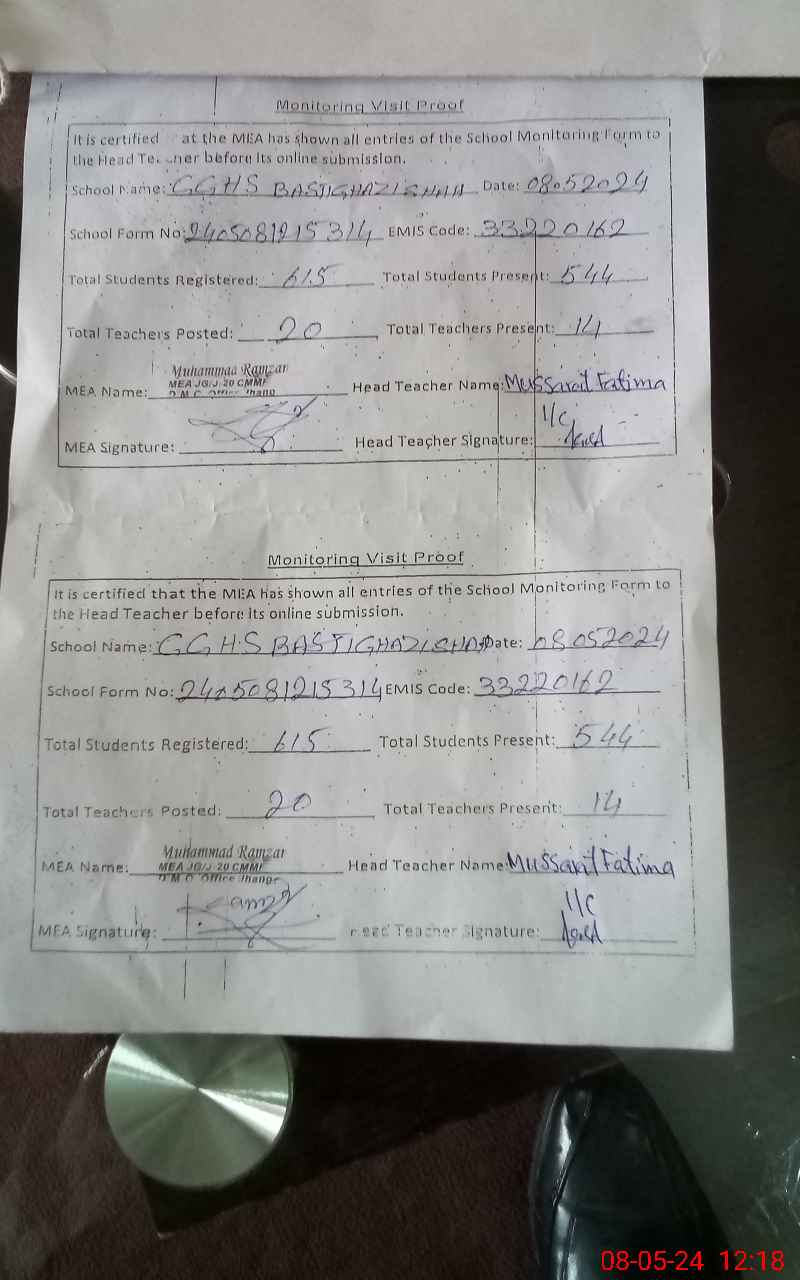 Monitoring Visit Proof
It is certified at the MEA has shown all entries of the School Monitoring Form to
the Head Te cher before its online submission.
School Name: GGHS BASTIGHAZISHAH Date: 08.052024
School Form No: 2405081215314 EMIS Code: 33220162
Total Students Registered: 615 Total Students Present: 544
Total Teachers Posted: 20 Total Teachers Present: 14
Muhammad Ramzan
MEA Name: MEA JG/J-20 CMMF Head Teacher Name: Mussarat Fatima
D.M.O. Office Jhang
I/C
MEA Signature: Head Teacher Signature:
Monitoring Visit Proof
It is certified that the MEA has shown all entries of the School Monitoring Form to
the Head Teacher before its online submission.
School Name: GGHS BASTIGHAZISHAH Date: 08.052024
School Form No: 2405081215314 EMIS Code: 33220162
Total Students Registered: 615 Total Students Present: 544
Total Teachers Posted: 20 Total Teachers Present: 14
Muhammad Ramzan
MEA Name: MEA JG/J-20 CMMF Head Teacher Name: Mussarat Fatima
D.M.O. Office Jhang
I/C
MEA Signature: Head Teacher Signature:
08-05-24 12:18